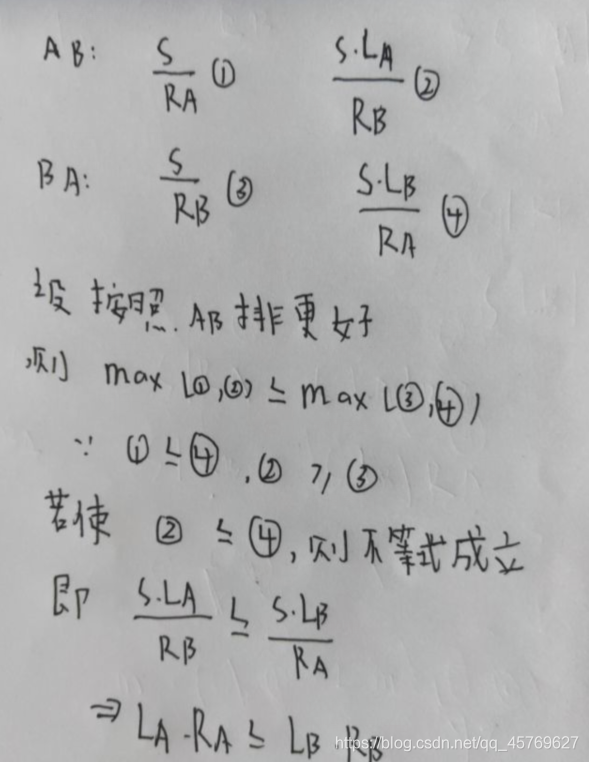 AB: S/RA ① S·LA/RB ②
BA: S/RB ③ S·LB/RA ④
设按照.AB排更好
则 max(①,②) ≤ max(③,④)
∵ ①≤④,② ≥ ③
若使 ② ≤ ④,则不等式成立
即 S·LA/RB ≤ S·LB/RA
⇒ LA·RA ≤ LB·RB
https://blog.csdn.net/qq_45769627